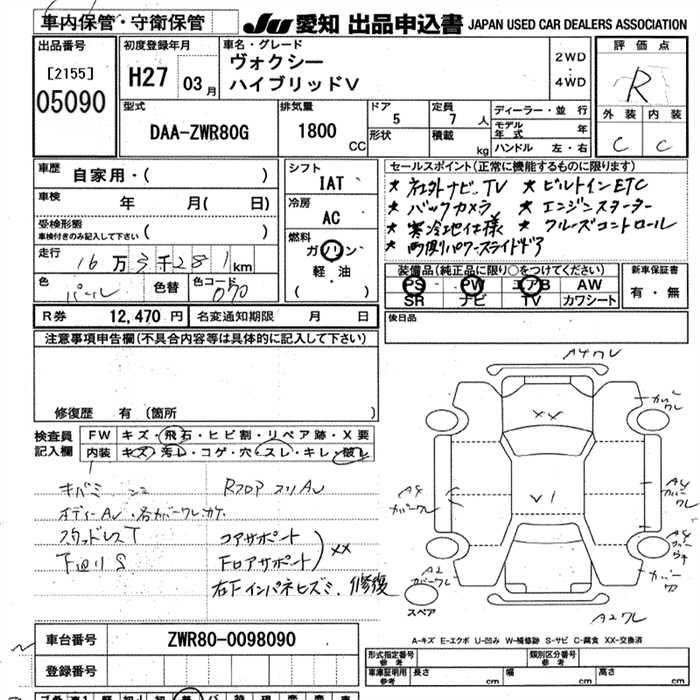 車内保管・守衛保管
JU 愛知 出品申込書 JAPAN USED CAR DEALERS ASSOCIATION
出品番号
[2155]
05090
初度登録年月
H27 03月
車名・グレード
ヴォクシー
ハイブリッドV
2WD
4WD
評価点
R
外装 内装
C C
型式
DAA-ZWR80G
排気量
1800 CC
ドア
5
形状
定員
7 人
積載
kg
ディーラー・並行
モデル年式 年
ハンドル 左・右
車歴
自家用・( )
車検
年 月( 日)
受検形態
車検付きのみ記入して下さい ( )
走行
16万3千281km
色
パール
色替
色コード
070
シフト
IAT
冷房
AC
燃料
ガソリン
軽・油
( )
セールスポイント(正常に機能するものに限ります)
★ 社外ナビ、TV ★ ビルトインETC
★ バックカメラ ★ エンジンスターター
★ 寒冷地仕様 ★ クルーズコントロール
★ 両側パワースライドドア
装備品(純正品に限り○をつけてください)
PS PW エアB AW
SR ナビ TV カワシート
新車保証書
有・無
R券 12,470 円 名変通知期限 月 日
後日品
注意事項申告欄(不具合内容等は具体的に記入して下さい)
修復歴 有(箇所 )
検査員記入欄
FW キズ・飛石・ヒビ割・リペア跡・X要
内装 キズ・汚レ・コゲ・穴・スレ・キレ・破レ
スタッドレスT
下廻りS
コアサポート
Fロアサポート
XX
右Fインパネヒズミ、修復
A4ワレ
XX
V1
A4
カバーワレ
A4
カバーワレ
A2
カバーワレ
A2ワレ
スペア
A-キズ E-エクボ U-凹み W-補修跡 S-サビ C-腐食 XX-交換済
車台番号 ZWR80-0098090
登録番号
型式指定番号
参考
類別区分番号
参考
車庫証明用
参考
長さ cm 幅 cm 高さ cm